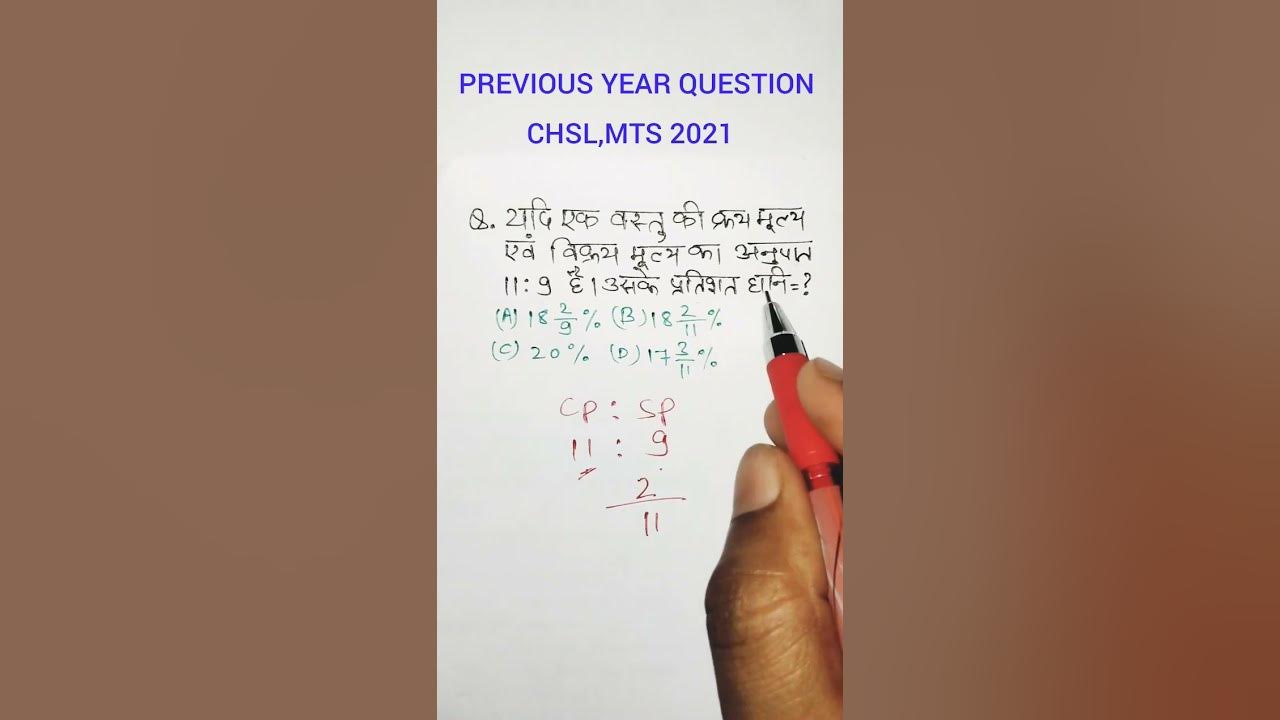 PREVIOUS YEAR QUESTION
CHSL,MTS 2021
Q. यदि एक वस्तु की क्रय मूल्य
एवं विक्रय मूल्य का अनुपात
11 : 9 है। उसके प्रतिशत हानि=?
(A) 18 2/9 % (B) 18 2/11 %
(C) 20% (D) 17 3/11 %
CP : SP
11 : 9
2
11